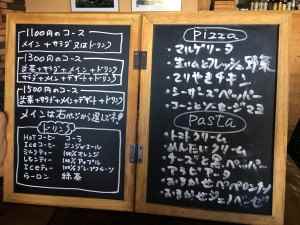 1100円のコース
メイン+サラダ又はドリンク
1300円のコース
前菜+サラダ+メイン+ドリンク
サラダ+メイン+デザート+ドリンク
1500円のコース
前菜+サラダ+メイン+デザート+ドリンク
メインは右ページから選んでネ
ドリンク
Hotコーヒー コーラ
Iceコーヒー ジンジャエール
ミルクティー 100%オレンジ
レモンティー 100%アップル
Iceティー 100%グレープフルーツ
ウーロン 緑茶
Pizza
・マルゲリータ
・生ハムとフレッシュ野菜
・てりやきチキン
・シーザンズペッパー
・コーンとソーセージマヨ
Pasta
・トマトクリーム
・めんたいクリーム
・チーズと黒ペッパー
・アラビアータ
・おまかせペペロンチーノ
・おまかせジェノベーゼ